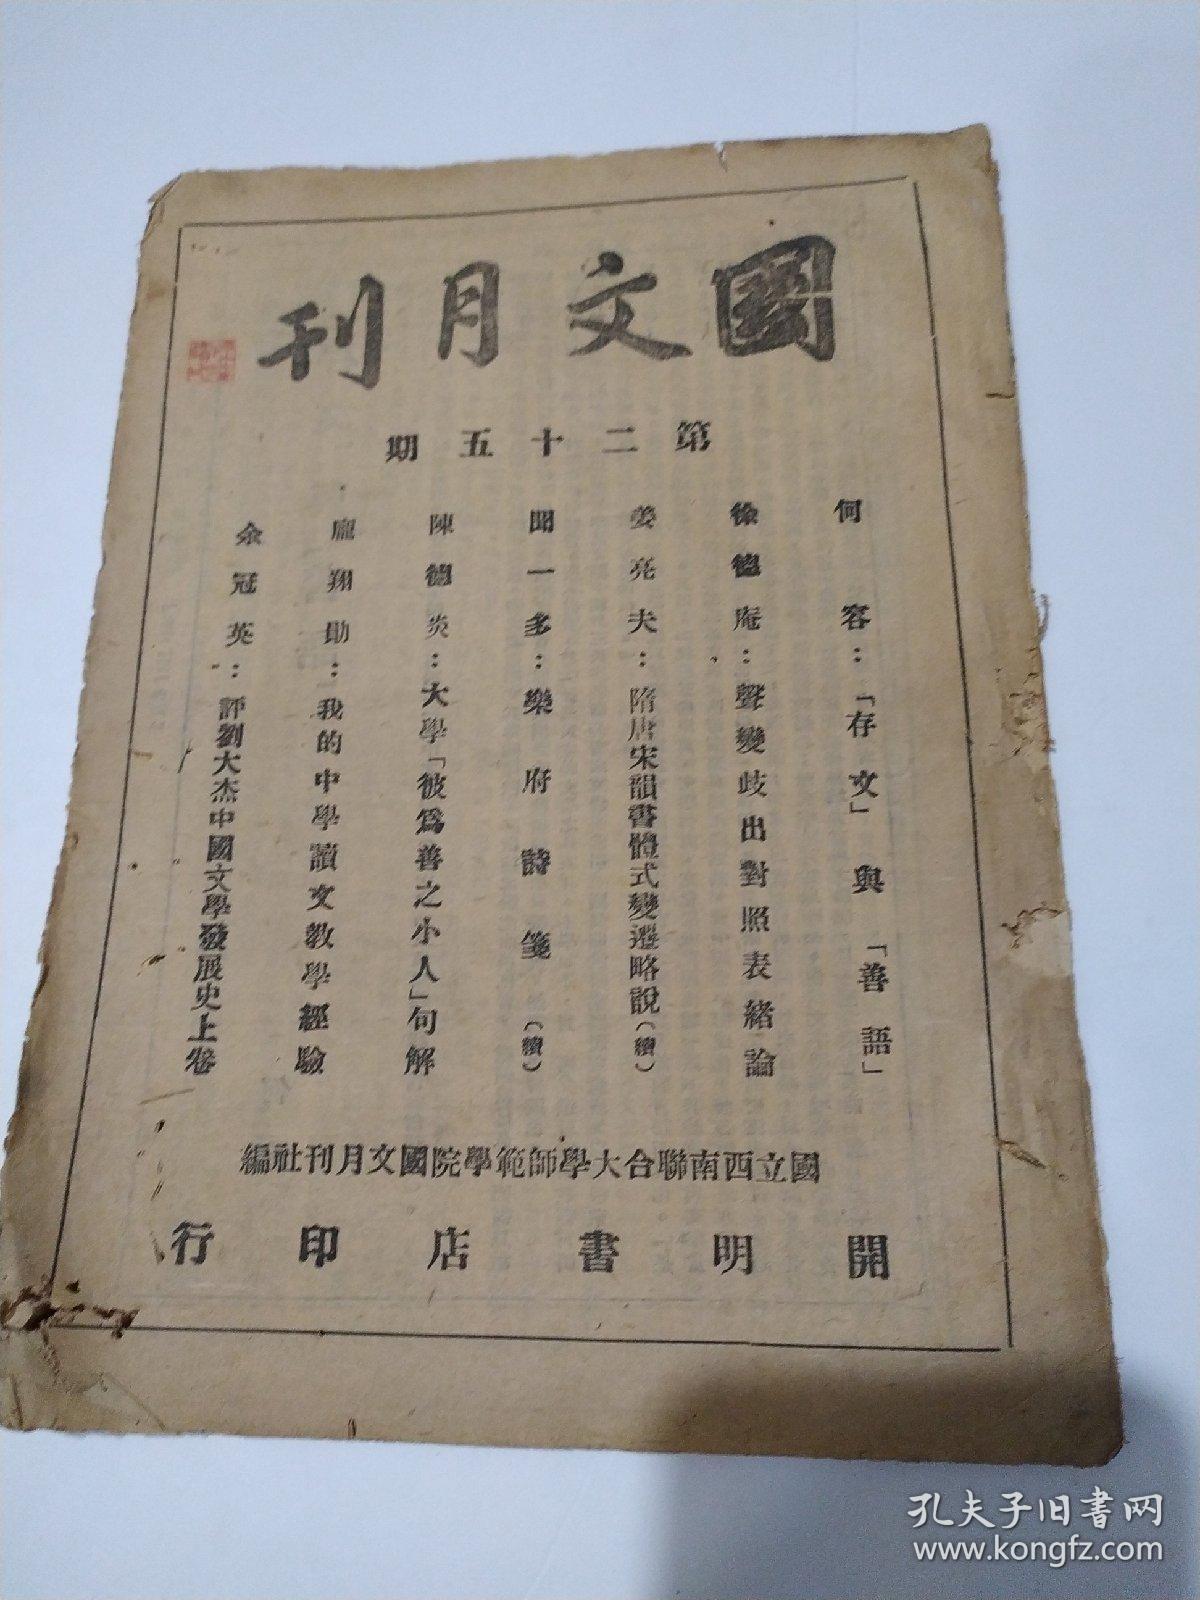 國文月刊
第二十五期
何容：「存文」與「善語」
徐德庵：聲變歧出對照表緒論
姜亮夫：隋唐宋韻書體式變遷略說（續）
聞一多：樂府詩箋（續）
陳德炎：大學「彼爲善之小人」句解
龐翔勛：我的中學讀文教學經驗
余冠英：評劉大杰中國文學發展史上卷
國立西南聯合大學師範學院國文月刊社編
開明書店印行
孔夫子旧书网
www.kongfz.com